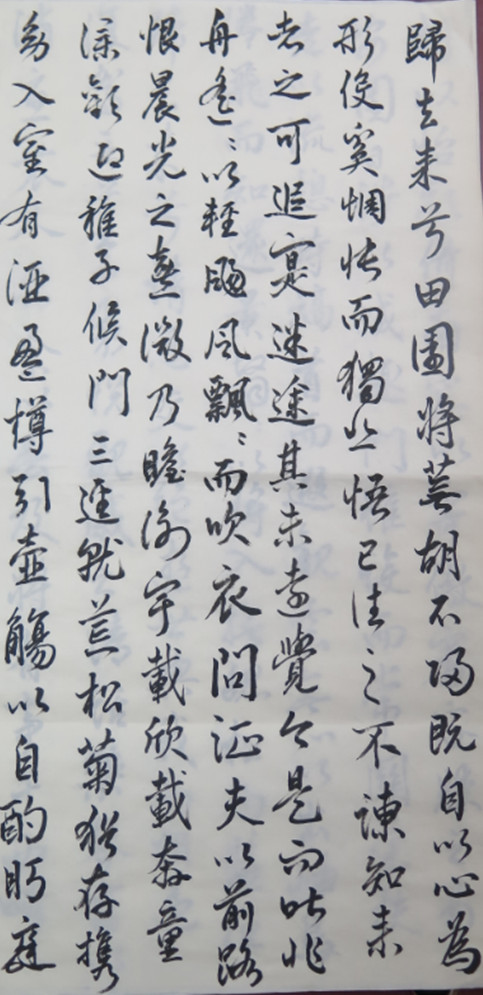 歸去来兮田園將蕪胡不歸既自以心為
形役奚惆悵而獨悲悟已往之不諫知来
者之可追寔迷途其未遠覺今是而昨非
舟遙〻以輕颺風飄〻而吹衣問征夫以前路
恨晨光之熹微乃瞻衡宇載欣載奔童
僕歡迎稚子候門三逕就荒松菊猶存携
幼入室有酒盈樽引壺觴以自酌眄庭